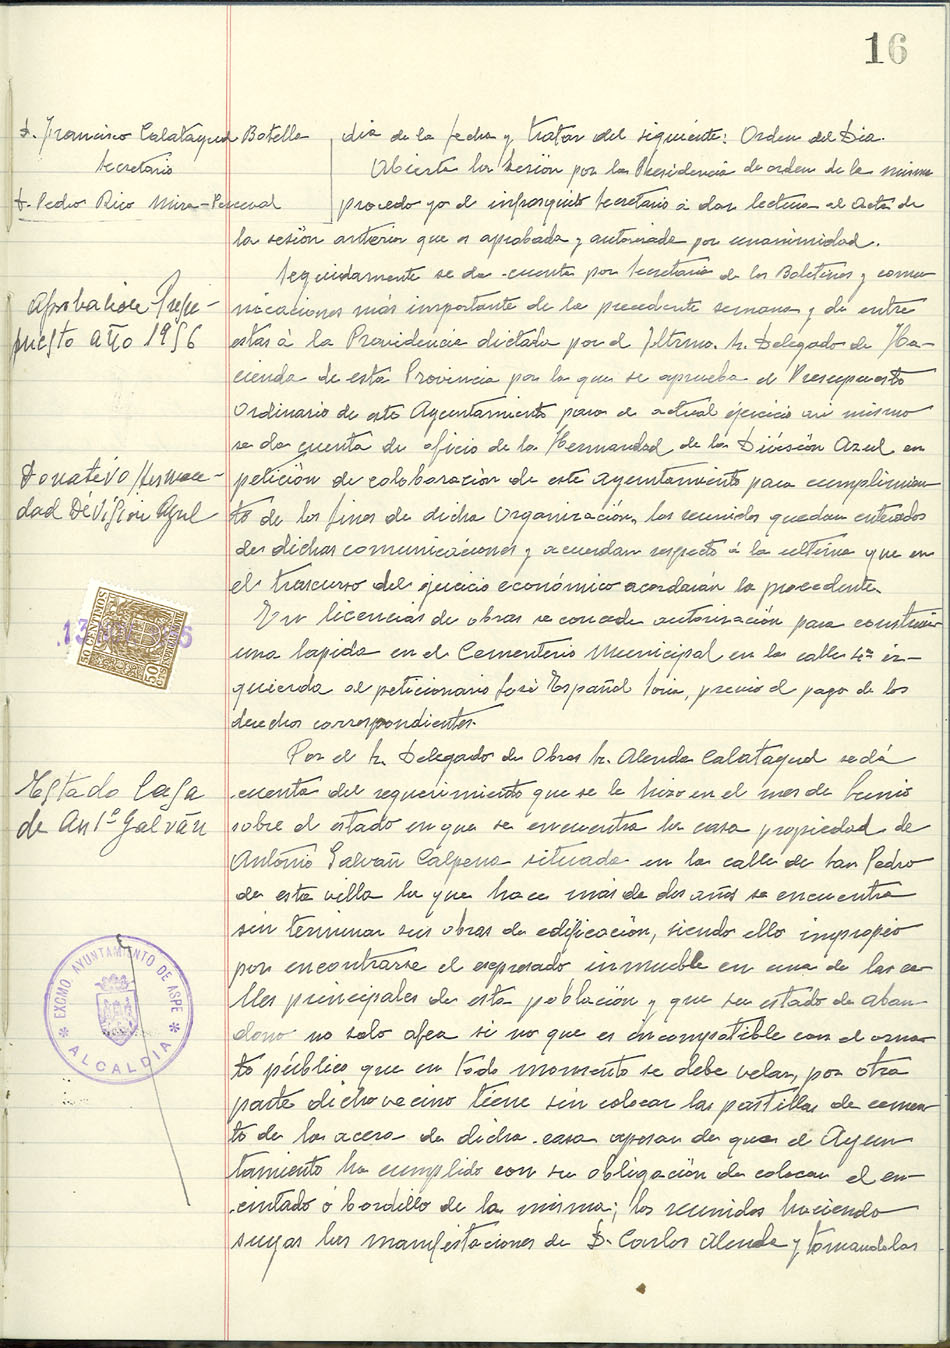 16
D. Francisco Calatayud Botella
Secretario
D. Pedro Rico Mira-Perceval
dia de la fecha y tratar del siguiente: Orden del Dia.
Abierta la sesión por la Presidencia de orden de la misma
procedo yo el infrascrito Secretario a dar lectura al Acta de
la sesión anterior que es aprobada y autorizada por unanimidad.
Aprobación Presu-
puesto año 1956
Seguidamente se da cuenta por Secretaria de los Boletines y comu
nicaciones más importante de la precedente semana y de entre
estas á la Providencia dictada por el Iltrmo. Sr. Delegado de Ha-
cienda de esta Provincia por la que se aprueba el Presupuesto
Ordinario de este Ayuntamiento para el actual ejercicio asi mismo
se da cuenta de oficio de la Hermandad de la División Azul en
petición de colaboración de este Ayuntamiento para cumplimien
to de los fines de dicha Organización, los reunidos quedan enterados
de dichas comunicaciones y acuerdan respecto á la ultima que en
el trascurso del ejercicio económico acordarán lo procedente.
Donativo Herman-
dad División Azul
50 CENTIMOS
50
CTS
13
En licencias de obras se concede autorización para construir
una lapida en el Cementerio Municipal en la calle 4ª iz-
quierda al peticionario José Español Soria, previo el pago de los
derechos correspondientes.
Estado Casa
de Antº Galván
Por el Sr. Delegado de Obras Sr. Alenda Calatayud se dá
cuenta del requerimiento que se le hizo en el mes de Junio
sobre el estado en que se encuentra la casa propiedad de
Antonio Galvañ Calpena situada en la calle de San Pedro
de esta villa la que hace más de dos años se encuentra
sin terminar sus obras de edificación, siendo ello impropio
por encontrarse el expresado inmueble en una de las ca-
lles principales de esta población y que su estado de aban-
dono no solo afea si no que es incompatible con el orna-
to público que en todo momento se debe velar, por otra
parte dicho vecino tiene sin colocar las pastillas de cemen-
to de la acera de dicha casa apesar de que el Ayun
tamiento ha cumplido con su obligación de colocar el en-
cintado ó bordillo de la misma; los reunidos haciendo
suyas las manifestaciones de D. Carlos Alenda y tomandolas
EXCMO. AYUNTAMIENTO DE ASPE
* ALCALDIA *